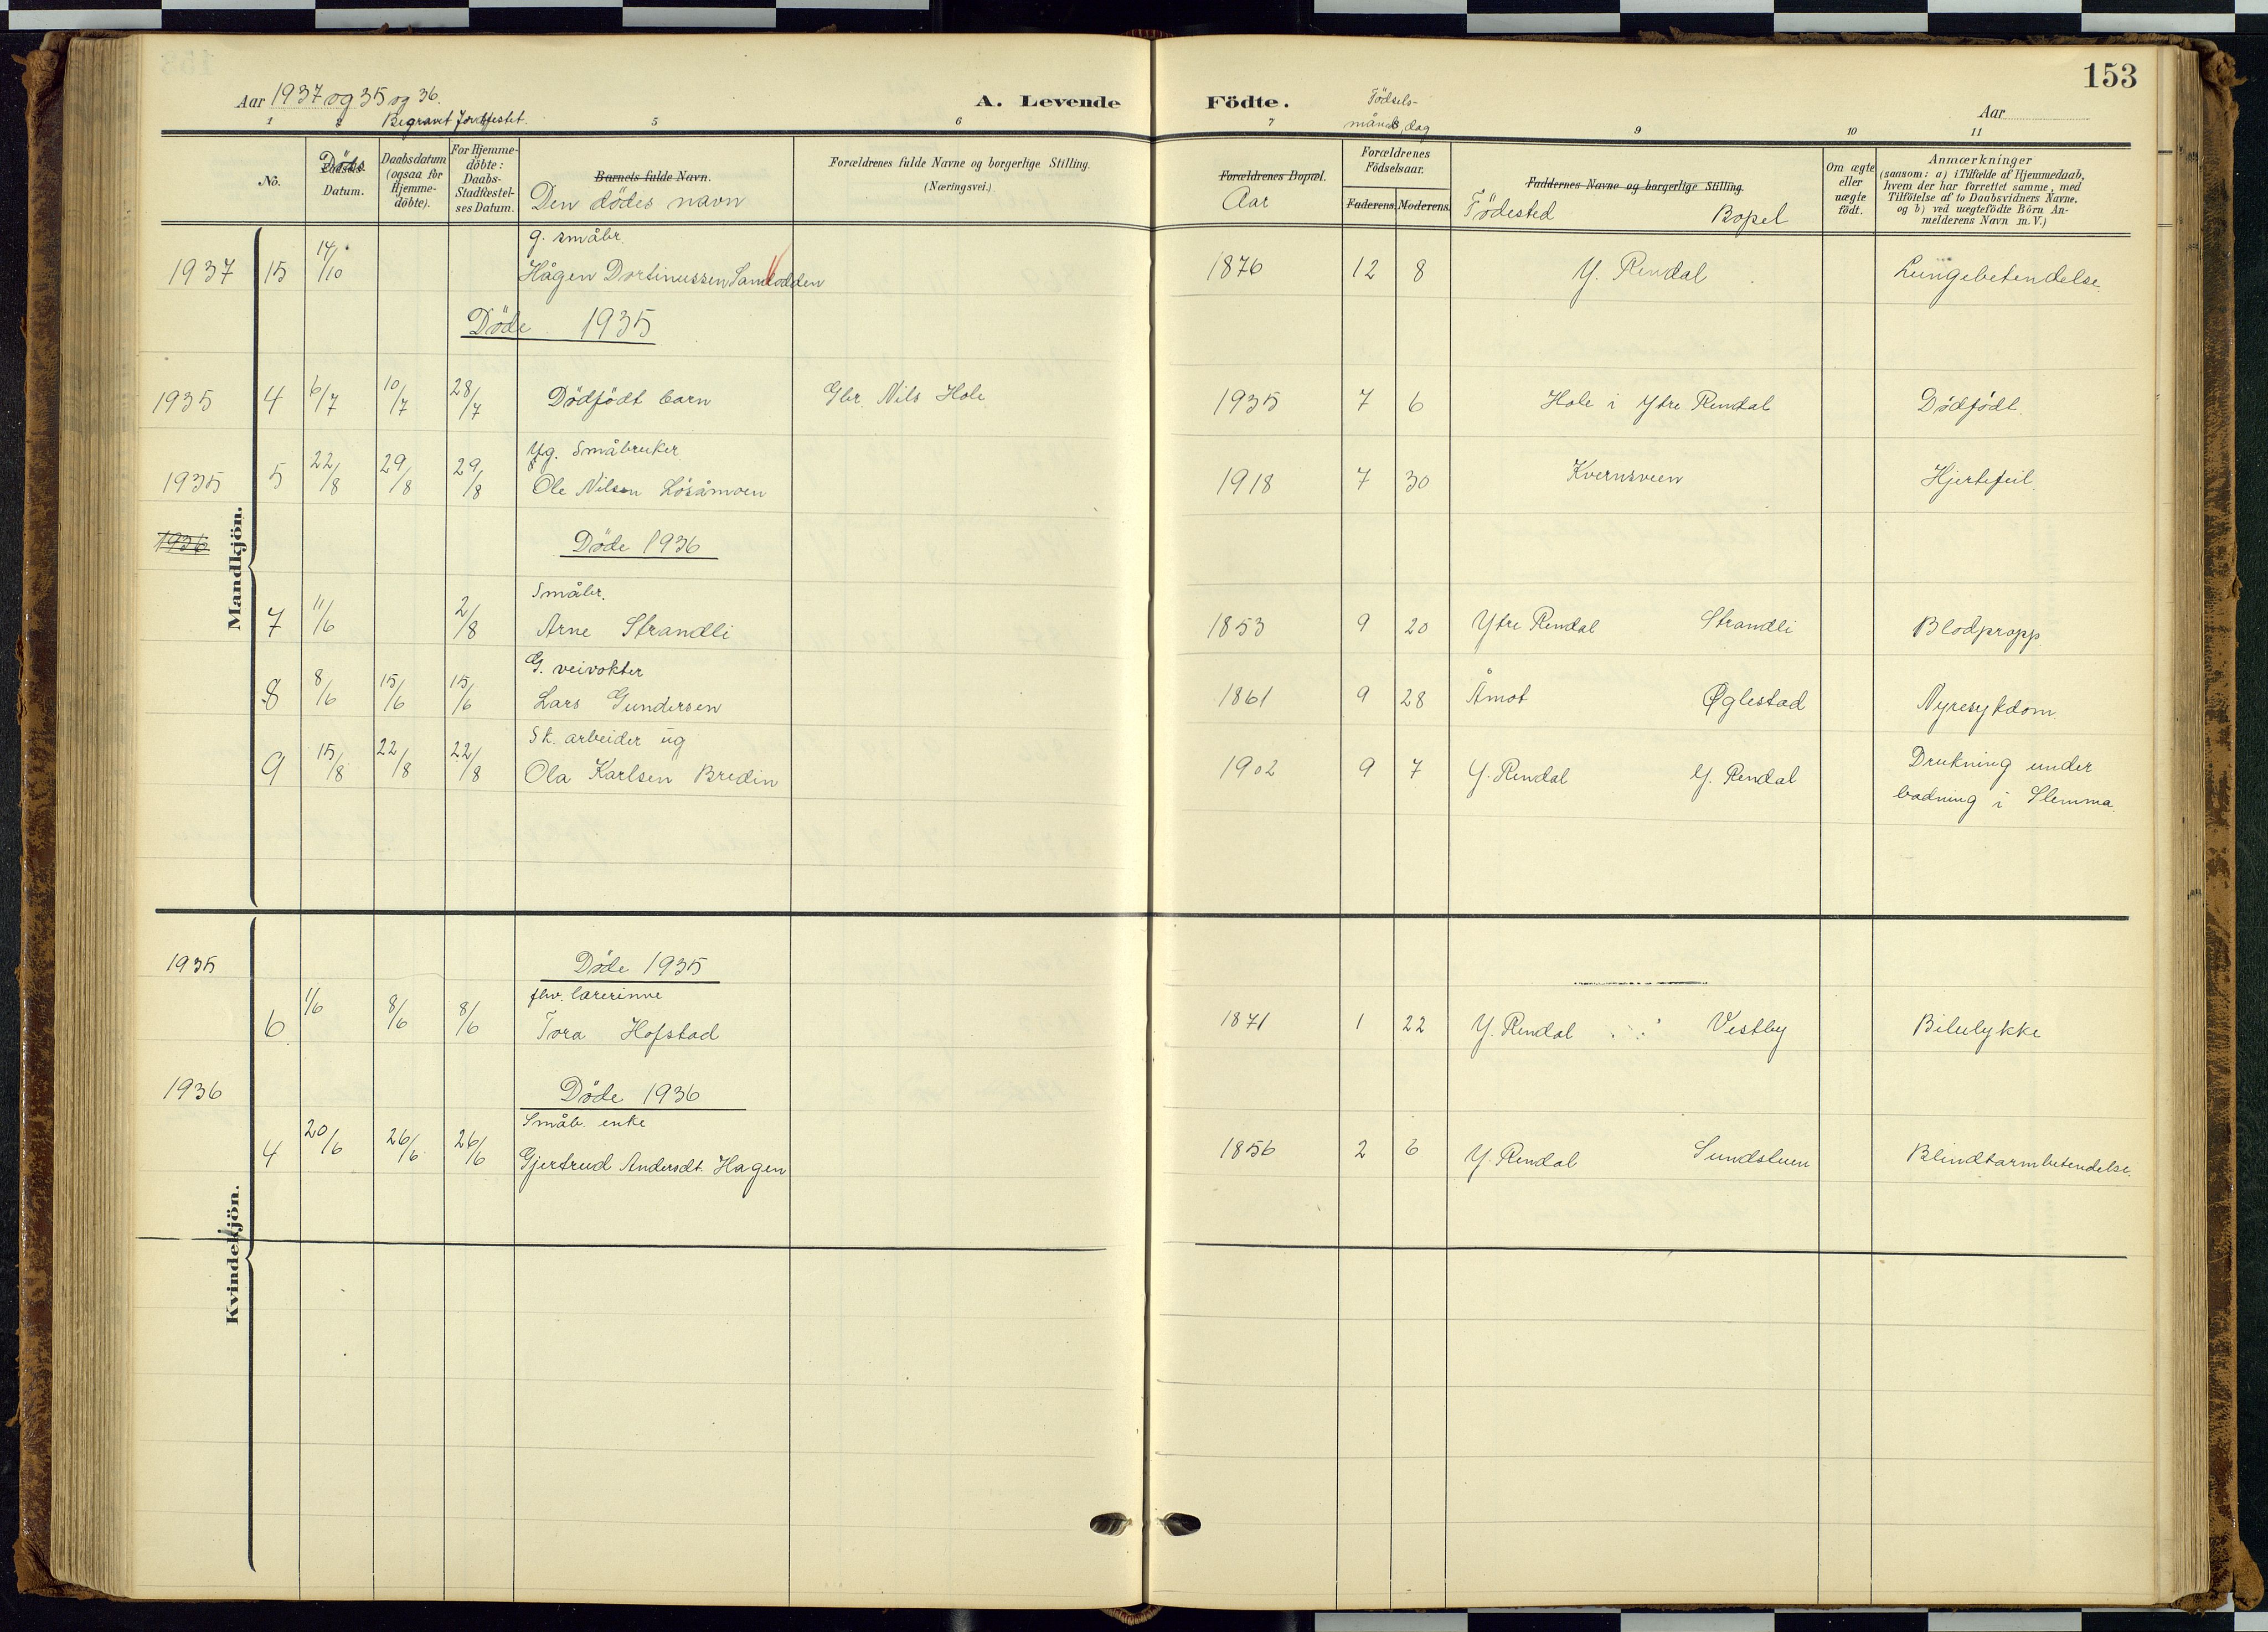 153
Aar 1937 og 35 og 36.
A. Levende Fødte.
Aar
Begravet Jordfestet.
Fødsels-
måned, dag
1 2 5 6 7 8 9 10 11
No.
Døds
Datum.
Daabsdatum
(ogsaa for
Hjemme-
döbte).
For Hjemme-
döbte:
Daabs-
Stadfæstel-
ses Datum.
Barnets fulde Navn.
Den dödes navn
Forældrenes fulde Navne og borgerlige Stilling.
(Næringsvei.)
Forældrenes Bopæl.
Aar
Forældrenes
Födselsaar.
Faderens. Moderens.
Faddernes Navne og borgerlige Stilling.
Födested Bopel
Om ægte
eller
uægte
födt.
Anmærkninger
(saasom: a) i Tilfælde af Hjemmedaab,
hvem der har forrettet samme, med
Tilföielse af to Daabsvidners Navne,
og b) ved uægtefödte Börn An-
melderens Navn m. V.)
Mandkjön.
g. småbr.
1937 15 14/10 Hågen Dortinussen 1876 12 8 Y. Rendal Lungebetendelse.
Döde 1935
1935 4 6/7 10/7 28/7 Dödfödt barn Gbr. Nils Hole 1935 7 6 Hole i Ytre Rendal Dödfödt.
Yg. Småbruker
1935 5 22/8 29/8 29/8 Ole Nilsen Lösåmoen 1918 7 30 Kvernsveen Hjertefeil.
1936
Döde 1936
Småbr.
7 11/6 2/8 Arne Strandli 1853 9 20 Ytre Rendal Strandli Blodpropp.
G. veivokter
8 8/6 15/6 15/6 Lars Gundersen 1861 9 28 Åmot Øglestad Nyresykdom.
Sk. arbeider ug
9 15/8 22/8 22/8 Ola Karlsen Bredin 1902 9 7 Y. Rendal Y. Rendal Drukning under
badning i Slemma.
Kvindekjön.
1935 Döde 1935
fhv. lærerinne
6 1/6 8/6 8/6 Tora Hofstad 1871 1 22 Y. Rendal Vestby Bilulykke
1936 Döde 1936
Småb. enke
4 20/6 26/6 26/6 Gjertrud Andersdt. Hagen 1856 2 6 Y. Rendal Sundstuen Blindtarmbetendelse.